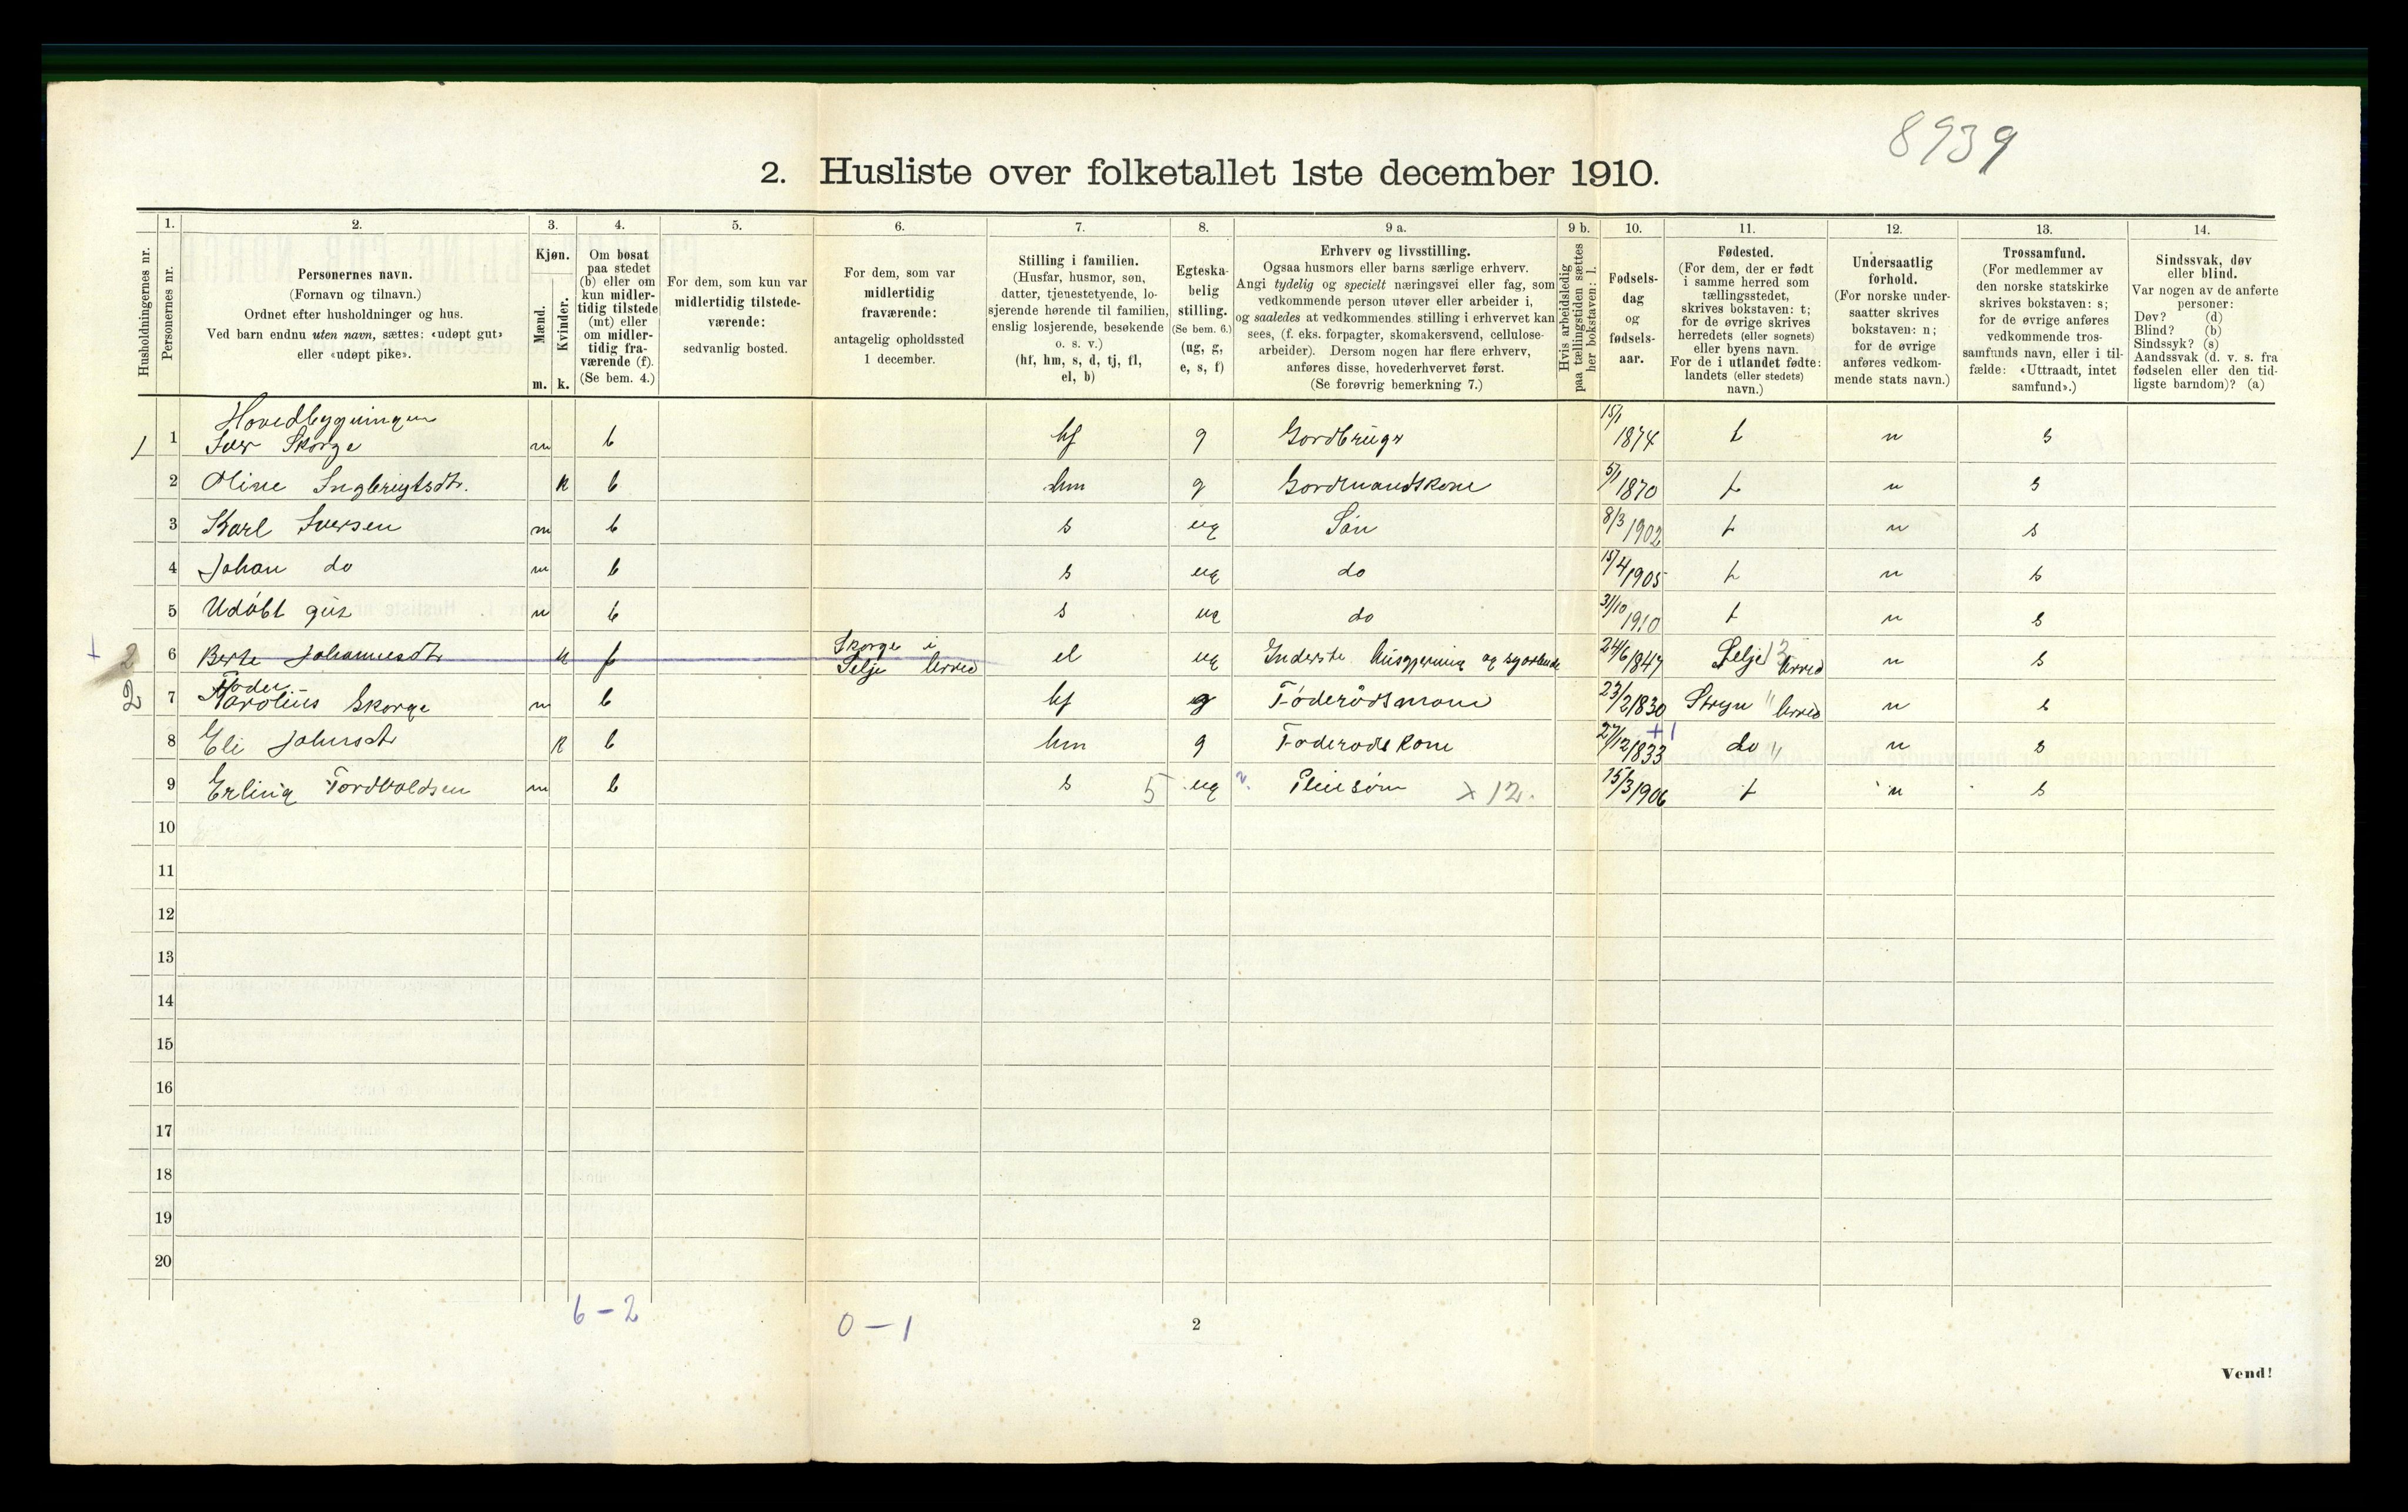 8939
2. Husliste over folketallet 1ste december 1910.
Husholdningernes nr.
1.
Personernes nr.
2.
Personernes navn.
(Fornavn og tilnavn.)
Ordnet efter husholdninger og hus.
Ved barn endnu uten navn, sættes: «udøpt gut»
eller «udøpt pike».
3.
Kjøn.
Mænd.
Kvinder.
m. k.
4.
Om bosat
paa stedet
(b) eller om
kun midler-
tidig tilstede
(mt) eller
om midler-
tidig fra-
værende (f).
(Se bem. 4.)
5.
For dem, som kun var
midlertidig tilstede-
værende:
sedvanlig bosted.
6.
For dem, som var
midlertidig
fraværende:
antagelig opholdssted
1 december.
7.
Stilling i familien.
(Husfar, husmor, søn,
datter, tjenestetyende, lo-
sjerende hørende til familien,
enslig losjerende, besøkende
o. s. v.)
(hf, hm, s, d, tj, fl,
el, b)
8.
Egteska-
belig
stilling.
(Se bem. 6.)
(ug, g,
e, s, f)
9 a.
Erhverv og livsstilling.
Ogsaa husmors eller barns særlige erhverv.
Angi tydelig og specielt næringsvei eller fag, som
vedkommende person utøver eller arbeider i,
og saaledes at vedkommendes stilling i erhvervet kan
sees, (f. eks. forpagter, skomakersvend, cellulose-
arbeider). Dersom nogen har flere erhverv,
anføres disse, hovederhvervet først.
(Se forøvrig bemerkning 7.)
9 b.
Hvis arbeidsledig
paa tællingstiden sættes
her bokstaven: l.
10.
Fødsels-
dag
og
fødsels-
aar.
11.
Fødested.
(For dem, der er født
i samme herred som
tællingsstedet,
skrives bokstaven: t;
for de øvrige skrives
herredets (eller sognets)
eller byens navn.
For de i utlandet fødte:
landets (eller stedets)
navn.)
12.
Undersaatlig
forhold.
(For norske under-
saatter skrives
bokstaven: n;
for de øvrige
anføres vedkom-
mende stats navn.)
13.
Trossamfund.
(For medlemmer av
den norske statskirke
skrives bokstaven: s;
for de øvrige anføres
vedkommende tros-
samfunds navn, eller i til-
fælde: «Uttraadt, intet
samfund».)
14.
Sindssvak, døv
eller blind.
Var nogen av de anførte
personer:
Døv? (d)
Blind? (b)
Sindssyk? (s)
Aandssvak (d. v. s. fra
fødselen eller den tid-
ligste barndom)? (a)
Hovedbygningen
1 1 Iver Skorge m b hf g Gordbruger 15/1 1874 t n s
2 Oline Ingbrigtsdtr. k b hm g Gordmandskone 5/1 1870 t n s
3 Karl Iversen m b s ug Søn 8/3 1902 t n s
4 Johan do m b s ug do 15/4 1905 t n s
5 Udøbt gut m b s ug do 31/10 1910 t n s
+ 2 6 Berte Johannesdtr k f Skorge i Selje herred el ug Inderste Husgjerning og 24/6 1847 Selje herred n s
Føder
2 7 Karolius Skorge m b hf g Føderådsmand 23/2 1830 Stryn " herred n s
8 Eli Johnsdtr k b hm g Føderods kone 27/12 1833 +1 do " n s
9 Erling Tordvoldsen m b s 5 ug Pleiesøn x 12. 15/3 1906 t n s
10
11
12
13
14
15
16
17
18
19
20
6 – 2
0 – 1
2
Vend!